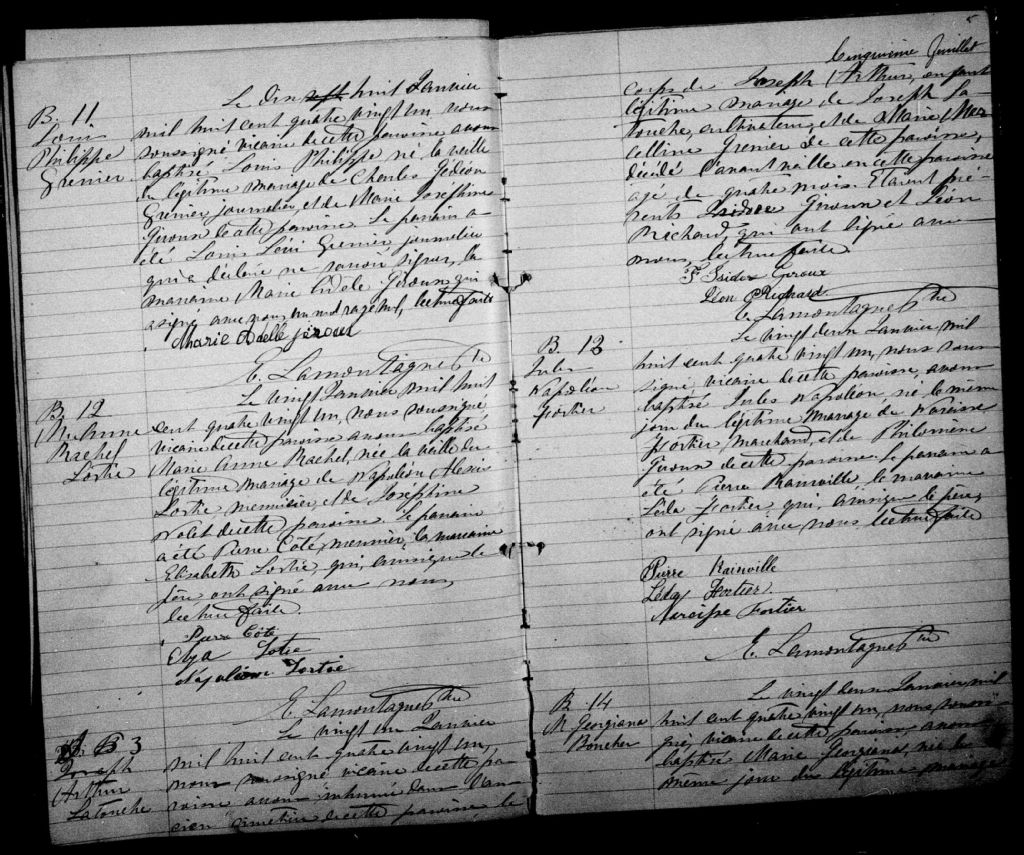 B. 11
Louis
Philippe
Grenier
Le dix sept huit Janvier
mil huit cent quatre vingt un nous
soussigné vicaire de cette paroisse avons
baptisé Louis Philippe né la veille
du légitime mariage de Charles Gédéon
Grenier, journalier, et de Marie Joséphine
Giroux de cette paroisse. Le parrain a
été Louis Grenier, journalier
qui a déclaré ne savoir signer, la
marraine Marie Adèle Giroux qui
a signé avec nous, lecture faite
Marie Adelle jeroux
E. Lamontagne Ptre
B. 12
M. Anne
Rachel
Lortie
Le vingt Janvier mil huit
cent quatre vingt un, nous soussigné
vicaire de cette paroisse avons baptisé
Marie Anne Rachel, née la veille du
légitime mariage de Napoléon Alexis
Lortie menuisier, et de Joséphine
Nolet de cette paroisse. Le parrain
a été Pierre Côté, meunier, la marraine
Elisabeth Lortie qui, ainsi que le
père ont signé avec nous,
lecture faite
Pierre Côté
Lotie
Napoleon Lortie
E. Lamontagne Ptre
S. 3
Joseph
Arthur
Latouche
Le vingt un Janvier
mil huit cent quatre vingt un,
nous soussigné vicaire de cette pa-
roisse avons inhumé dans l'an-
cien cimetière de cette paroisse le
5
Cinquième feuillet
corps de Joseph Arthur, enfant
légitime mariage de Joseph La-
touche, cultivateur, et de Marie Mar-
celline Grenier de cette paroisse,
décédé l'avant veille en cette paroisse
agé de quatre mois. Etaient pré-
sents Isidore Giroux et Léon
Richard, qui ont signé avec
nous, lecture faite
F Isidor Giroux
Léon Richard
E. Lamontagne Ptre
B. 13
Jules
Napoléon
Fortier
Le vingt deux Janvier mil
huit cent quatre vingt un, nous sous-
signé vicaire de cette paroisse, avons
baptisé Jules Napoléon, né le même
jour du légitime mariage de Narcisse
Fortier, marchand, et de Philomène
Giroux de cette paroisse. Le parrain a
été Pierre Rainville, la marraine
Léda Fortier qui, ainsi que le père,
ont signé avec nous lecture faite
Pierre Rainville
Léda Fortier.
Narcisse Fortier
E. Lamontagne Ptre
B. 14
M. Georgiana
Boucher
Le vingt deux Janvier mil
huit cent quatre vingt un, nous soussi-
gné, vicaire de cette paroisse, avons
baptisé Marie Georgiana, née le
même jour du légitime mariage